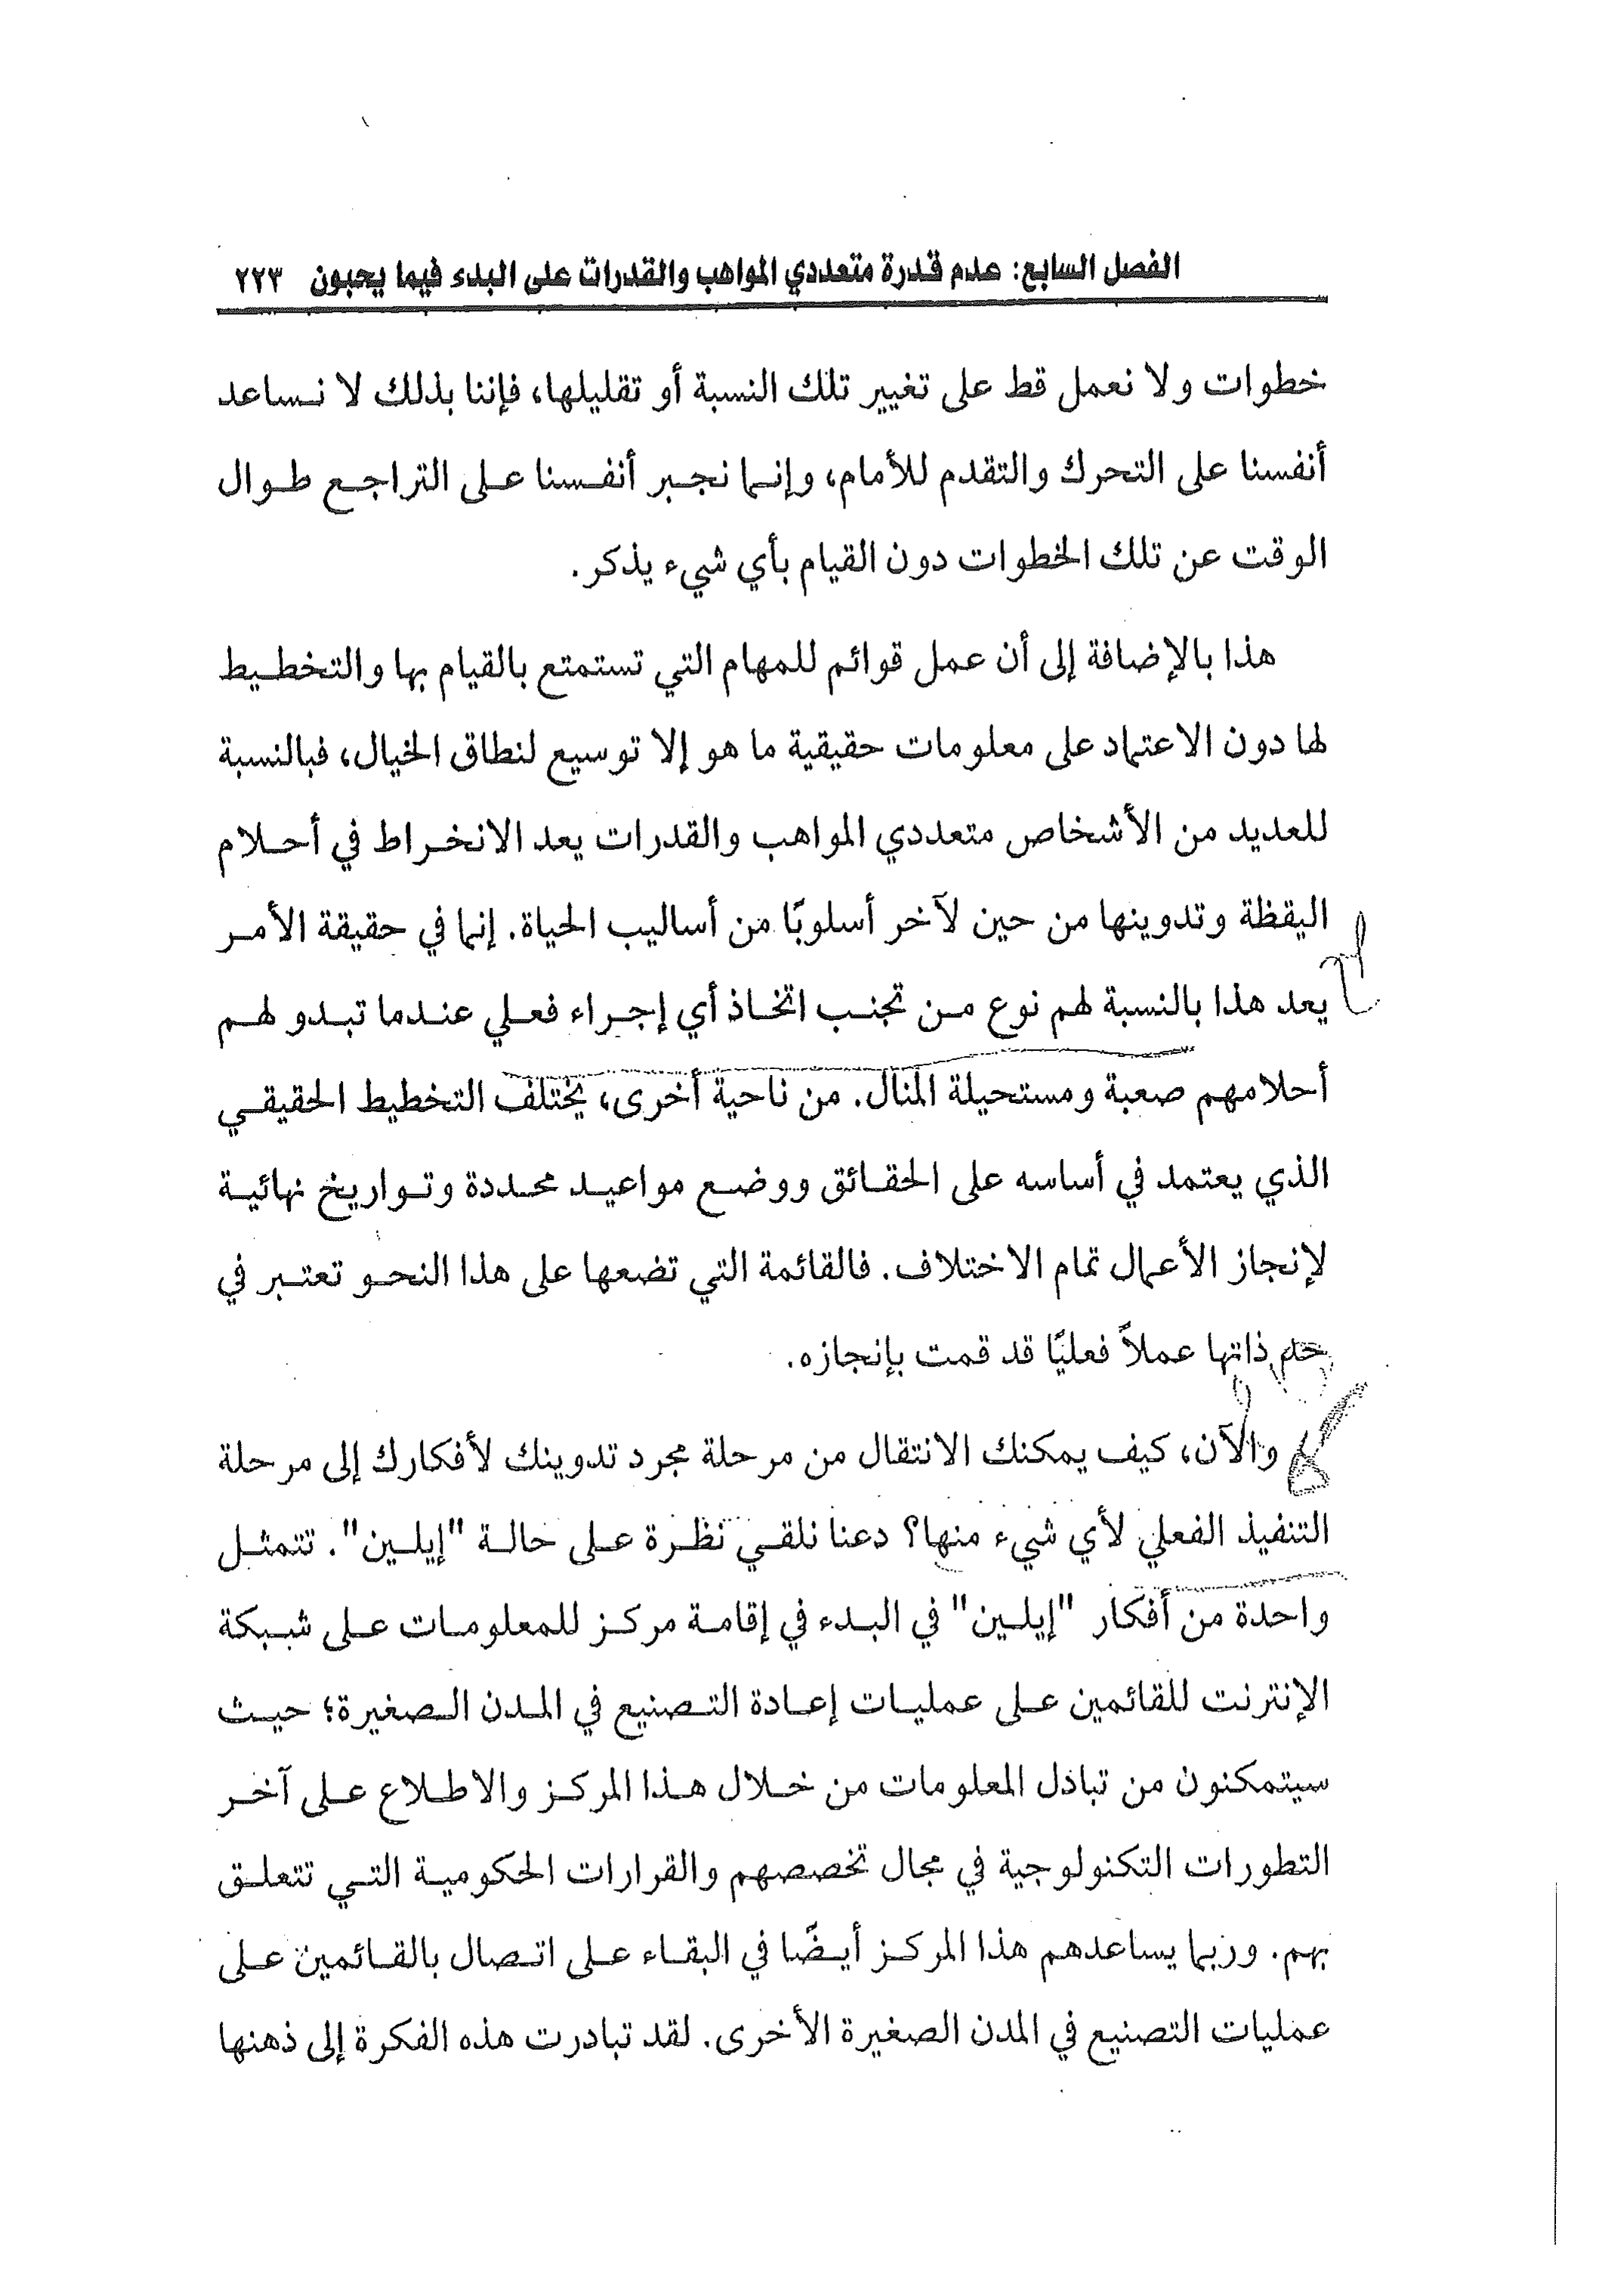 الفصل السابع: عدم قدرة متعددي المواهب والقدرات على البدء فيما يحبون ٢٢٣
خطوات ولا نعمل قط على تغيير تلك النسبة أو تقليلها، فإننا بذلك لا نساعد
أنفسنا على التحرك والتقدم للأمام، وإنما نجبر أنفسنا على التراجع طوال
الوقت عن تلك الخطوات دون القيام بأي شيء يذكر.
هذا بالإضافة إلى أن عمل قوائم للمهام التي تستمتع بالقيام بها والتخطيط
لها دون الاعتماد على معلومات حقيقية ما هو إلا توسيع لنطاق الخيال، فبالنسبة
للعديد من الأشخاص متعددي المواهب والقدرات يعد الانخراط في أحلام
اليقظة وتدوينها من حين لآخر أسلوبًا من أساليب الحياة. إنما في حقيقة الأمر
يعد هذا بالنسبة لهم نوع من تجنب اتخاذ أي إجراء فعلي عندما تبدو لهم
أحلامهم صعبة ومستحيلة المنال. من ناحية أخرى، يختلف التخطيط الحقيقي
الذي يعتمد في أساسه على الحقائق ووضع مواعيد محددة وتواريخ نهائية
لإنجاز الأعمال تمام الاختلاف. فالقائمة التي تضعها على هذا النحو تعتبر في
حد ذاتها عملاً فعليًا قد قمت بإنجازه.
والآن، كيف يمكنك الانتقال من مرحلة مجرد تدوينك لأفكارك إلى مرحلة
التنفيذ الفعلي لأي شيء منها؟ دعنا نلقي نظرة على حالة "إيلين". تتمثل
واحدة من أفكار "إيلين" في البدء في إقامة مركز للمعلومات على شبكة
الإنترنت للقائمين على عمليات إعادة التصنيع في المدن الصغيرة؛ حيث
سيتمكنون من تبادل المعلومات من خلال هذا المركز والاطلاع على آخر
التطورات التكنولوجية في مجال تخصصهم والقرارات الحكومية التي تتعلق
بهم. وربما يساعدهم هذا المركز أيضًا في البقاء على اتصال بالقائمين على
عمليات التصنيع في المدن الصغيرة الأخرى. لقد تبادرت هذه الفكرة إلى ذهنها